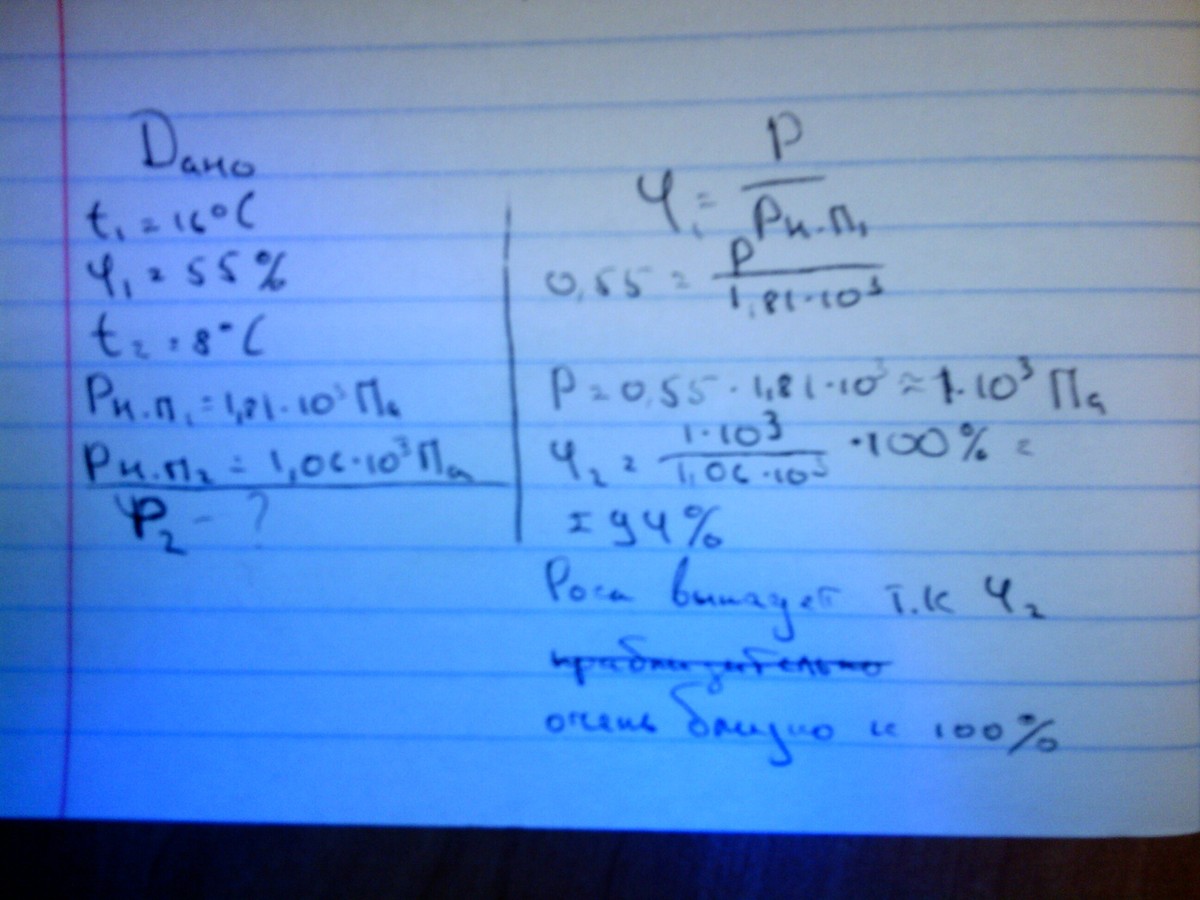 Дано
t₁ = 16°C
φ₁ = 55%
t₂ = 8°C
Pн.п₁ = 1,81·10³ Па
Pн.п₂ = 1,06·10³ Па
φ₂ - ?
φ₁ = P / Pн.п₁
0,55 = P / 1,81·10³
P = 0,55 · 1,81·10³ ≈ 1·10³ Па
φ₂ = 1·10³ / 1,06·10³ · 100% =
= 94%
Роса выпадет т.к φ₂
приблизительно
очень близко к 100%